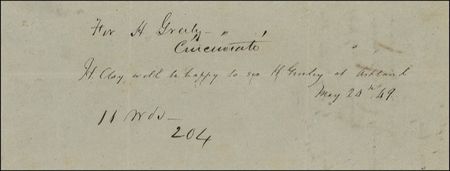 For H Greely - "
Cincinnati
H. Clay will be happy to see H Greeley at Ashland
May 20th 49.
11 Wds -
204